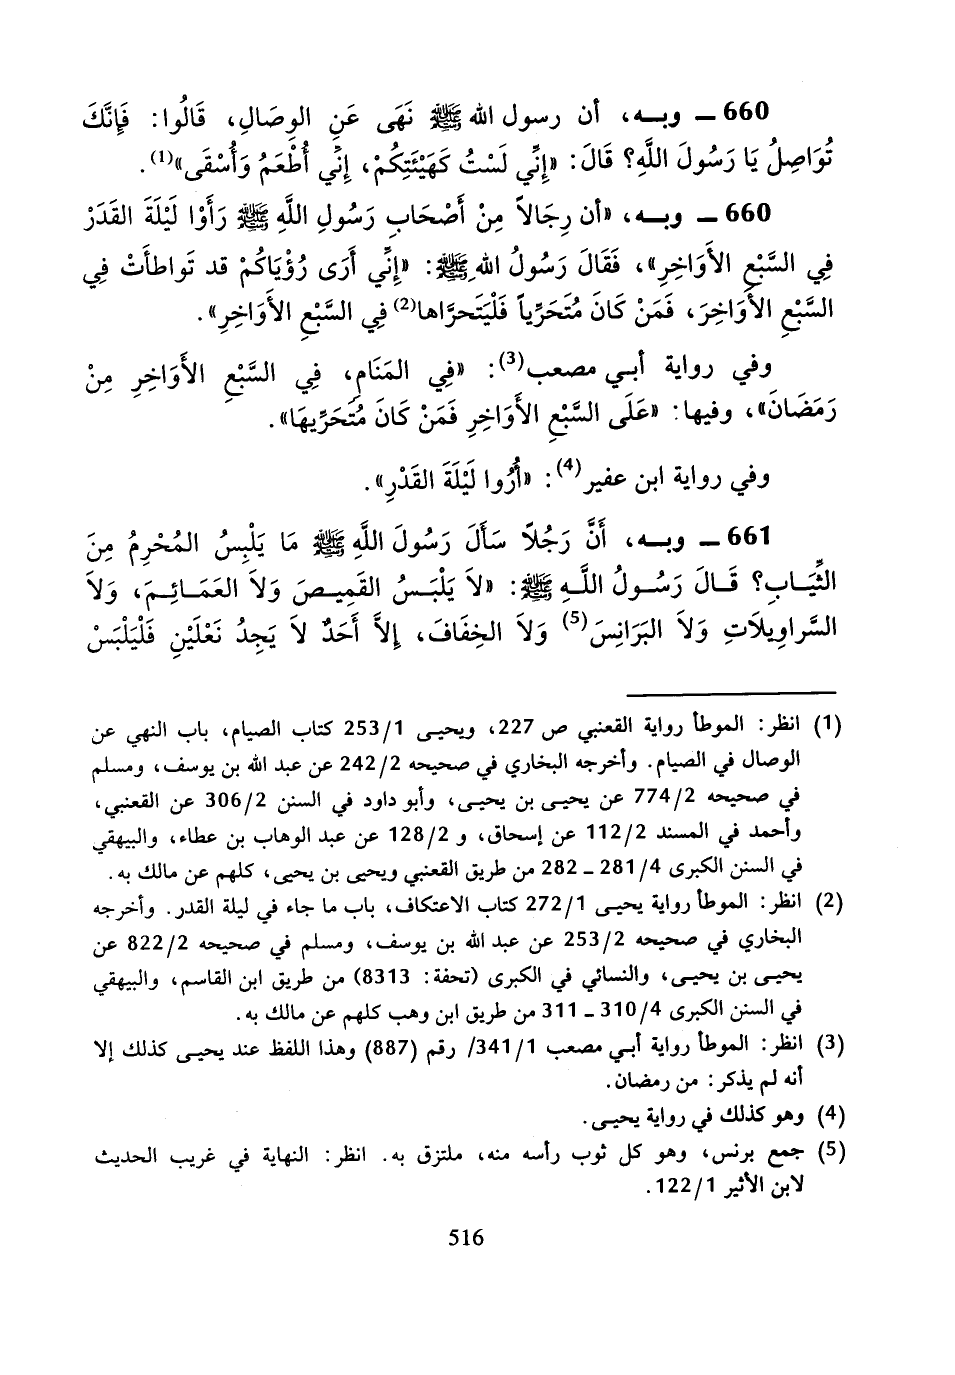 660 ــ وبـه، أن رسول الله ﷺ نَهَى عَنِ الوِصَالِ، قَالُوا: فَإِنَّكَ
تُوَاصِلُ يَا رَسُولَ اللَّهِ؟ قَالَ: «إِنِّي لَسْتُ كَهَيْئَتِكُمْ، إِنِّي أُطْعَمُ وَأُسْقَى»(1).
660 ــ وبـه، «أن رِجَالاً مِنْ أَصْحَابِ رَسُولِ اللَّهِ ﷺ رَأَوْا لَيْلَةَ القَدَرْ
فِي السَّبْعِ الأَوَاخِرِ»، فَقَالَ رَسُولُ اللهِ ﷺ: «إِنِّي أَرَى رُؤْيَاكُمْ قد تَواطأَتْ فِي
السَّبْعِ الأَوَاخِرَ، فَمَنْ كَانَ مُتَحَرِّياً فَلْيَتَحرَّاها(2) فِي السَّبْعِ الأَوَاخِرِ».
وفي رواية أبـي مصعب(3): «فِي المَنَامِ، فِي السَّبْعِ الأَوَاخِرِ مِنْ
رَمَضَانَ»، وفيها: «عَلَى السَّبْعِ الأَوَاخِرِ فَمَنْ كَانَ مُتَحَرِّيهَا».
وفي رواية ابن عفير(4): «أُرُوا لَيْلَةَ القَدْرِ».
661 ــ وبـه، أَنَّ رَجُلاً سَأَلَ رَسُولَ اللَّهِ ﷺ مَا يَلْبِسُ المُحْرِمُ مِنَ
الثِّيَابِ؟ قَـالَ رَسُـولُ اللَّـهِ ﷺ: «لاَ يَلْبَـسُ القَمِيـصَ وَلاَ العَمَـائِـمَ، وَلاَ
السَّراوِيلاَتِ وَلاَ البَرَانِسَ(5) وَلاَ الخِفَافَ، إِلاَّ أَحَدٌ لاَ يَجِدُ نَعْلَيْنِ فَلْيَلْبَسْ
(1) انظر: الموطأ رواية القعنبي ص 227، ويحيـى 253/1 كتاب الصيام، باب النهي عن
الوصال في الصيام. وأخرجه البخاري في صحيحه 242/2 عن عبد الله بن يوسف، ومسلم
في صحيحه 774/2 عن يحيـى بن يحيـى، وأبو داود في السنن 306/2 عن القعنبي،
وأحمد في المسند 112/2 عن إسحاق، و 128/2 عن عبد الوهاب بن عطاء، والبيهقي
في السنن الكبرى 281/4 ــ 282 من طريق القعنبي ويحيى بن يحيى، كلهم عن مالك به.
(2) انظر: الموطأ رواية يحيى 272/1 كتاب الاعتكاف، باب ما جاء في ليلة القدر. وأخرجه
البخاري في صحيحه 253/2 عن عبد الله بن يوسف، ومسلم في صحيحه 822/2 عن
يحيـى بن يحيـى، والنسائي في الكبرى (تحفة: 8313) من طريق ابن القاسم، والبيهقي
في السنن الكبرى 310/4 ــ 311 من طريق ابن وهب كلهم عن مالك به.
(3) انظر: الموطأ رواية أبـي مصعب 341/1/ رقم (887) وهذا اللفظ عند يحيـى كذلك إلا
أنه لم يذكر: من رمضان.
(4) وهو كذلك في رواية يحيـى.
(5) جمع برنس، وهو كل ثوب رأسه منه، ملتزق به. انظر: النهاية في غريب الحديث
لابن الأثير 122/1.
516